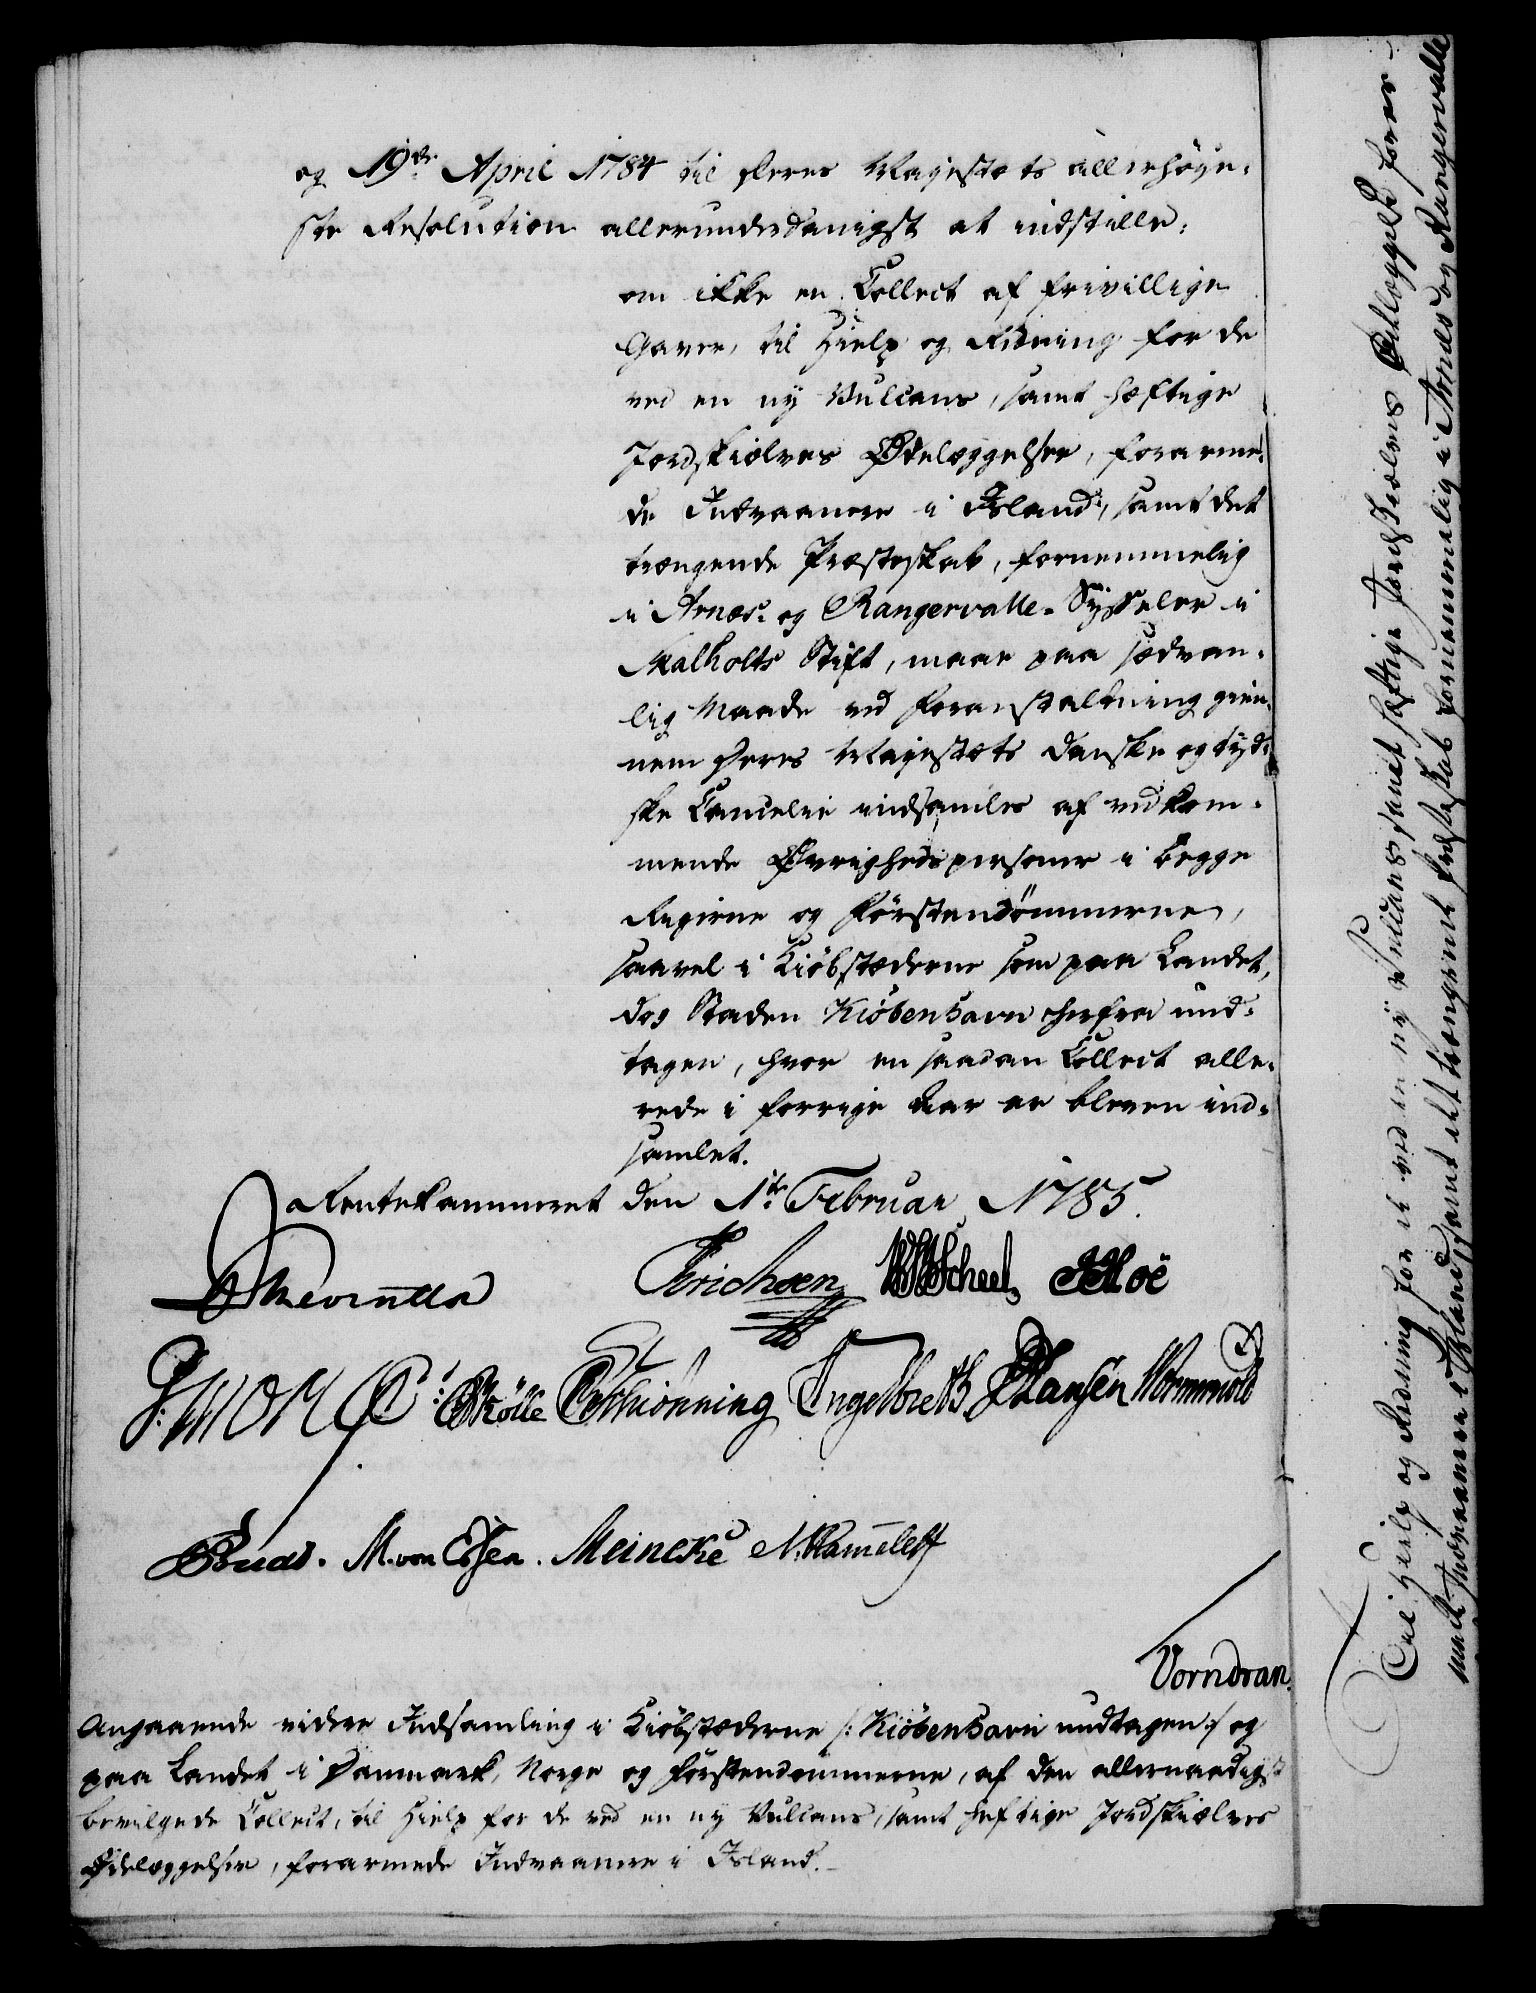 og 19de April 1784 til Deres Majestæts allerhöye-
ste Resolution allerunderdanigst at indstille:
om ikke en Collect af frivillige
Gaver, til Hielp og Redning for de
ved en ny Vulcans, samt hæftige
Jordskiælves Ødelæggelser, forarme-
de Indvaanere i Island, samt det
trængende Præsteskab, fornemmelig
i Arnæs- og Rangervalle-Sysseler i
Skalholts Stift, maae paa sædvan-
lig Maade ved Foranstaltning gien-
nem Deres Majestæts danske og tyd-
ske Cancelie indsamles af vedkom-
mende Øvrighedspersoner i begge
Rigerne og Förstendömmerne,
saavel i Kiöbstæderne som paa Landet,
dog Staden Kiöbenhavn herfra und-
tagen, hvor en saadan Collect alle-
rede i forrige Aar er bleven ind-
samlet.
Rentekammeret den 1te Februar 1785.
Erichsen Scheel
Schiönning Engelbreth Hansen Wormskiold
M. von Essen. Meincke
Vorndran.
Angaaende videre Indsamling i Kiöbstæderne /: Kiöbenhavn undtagen :/ og
paa Landet i Danmark, Norge og Förstendommerne, af den allernaadigst
bevilgede Collect, til Hielp for de ved en ny Vulcans, samt heftige Jordskiælves
Ødelæggelser, forarmede Indvaanere i Island.
Til Hielp og Redning for de ved en ny Vulcans samt hæftige Jordskiælves Ødelæggelser forar-
mede Indvaanere i Island, samt det trængende Præsteskab fornemmelig i Arnæs og Rangervalle